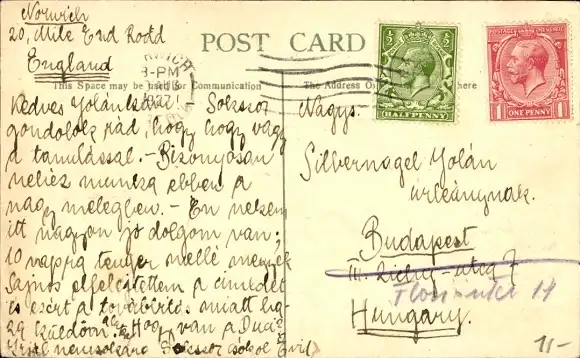 Norwich
20, Mile End Road
England
POST CARD
This Space may be used for Communication
The Address O
here
3-PM
1922
HALFPENNY
ONE PENNY
Kedves Jolánkám! - Sokszor
gondolok rád, hogy hogy vagy
a tanulással. - Bizonyosan
nehéz munka ebben a
nagy melegben. - Én nekem
itt nagyon jó dolgom van;
10 napra tenger mellé megyek
Sajnos elfelejtettem a címedet
és ezért a továbbítás miatt
küldöm Hogy van a Duci?
nemsokára Sokszor csókol
Nagys.
Silbernagel Jolán
úrleánynak.
Budapest
III. Zichy-utca 7
14
Hungary.